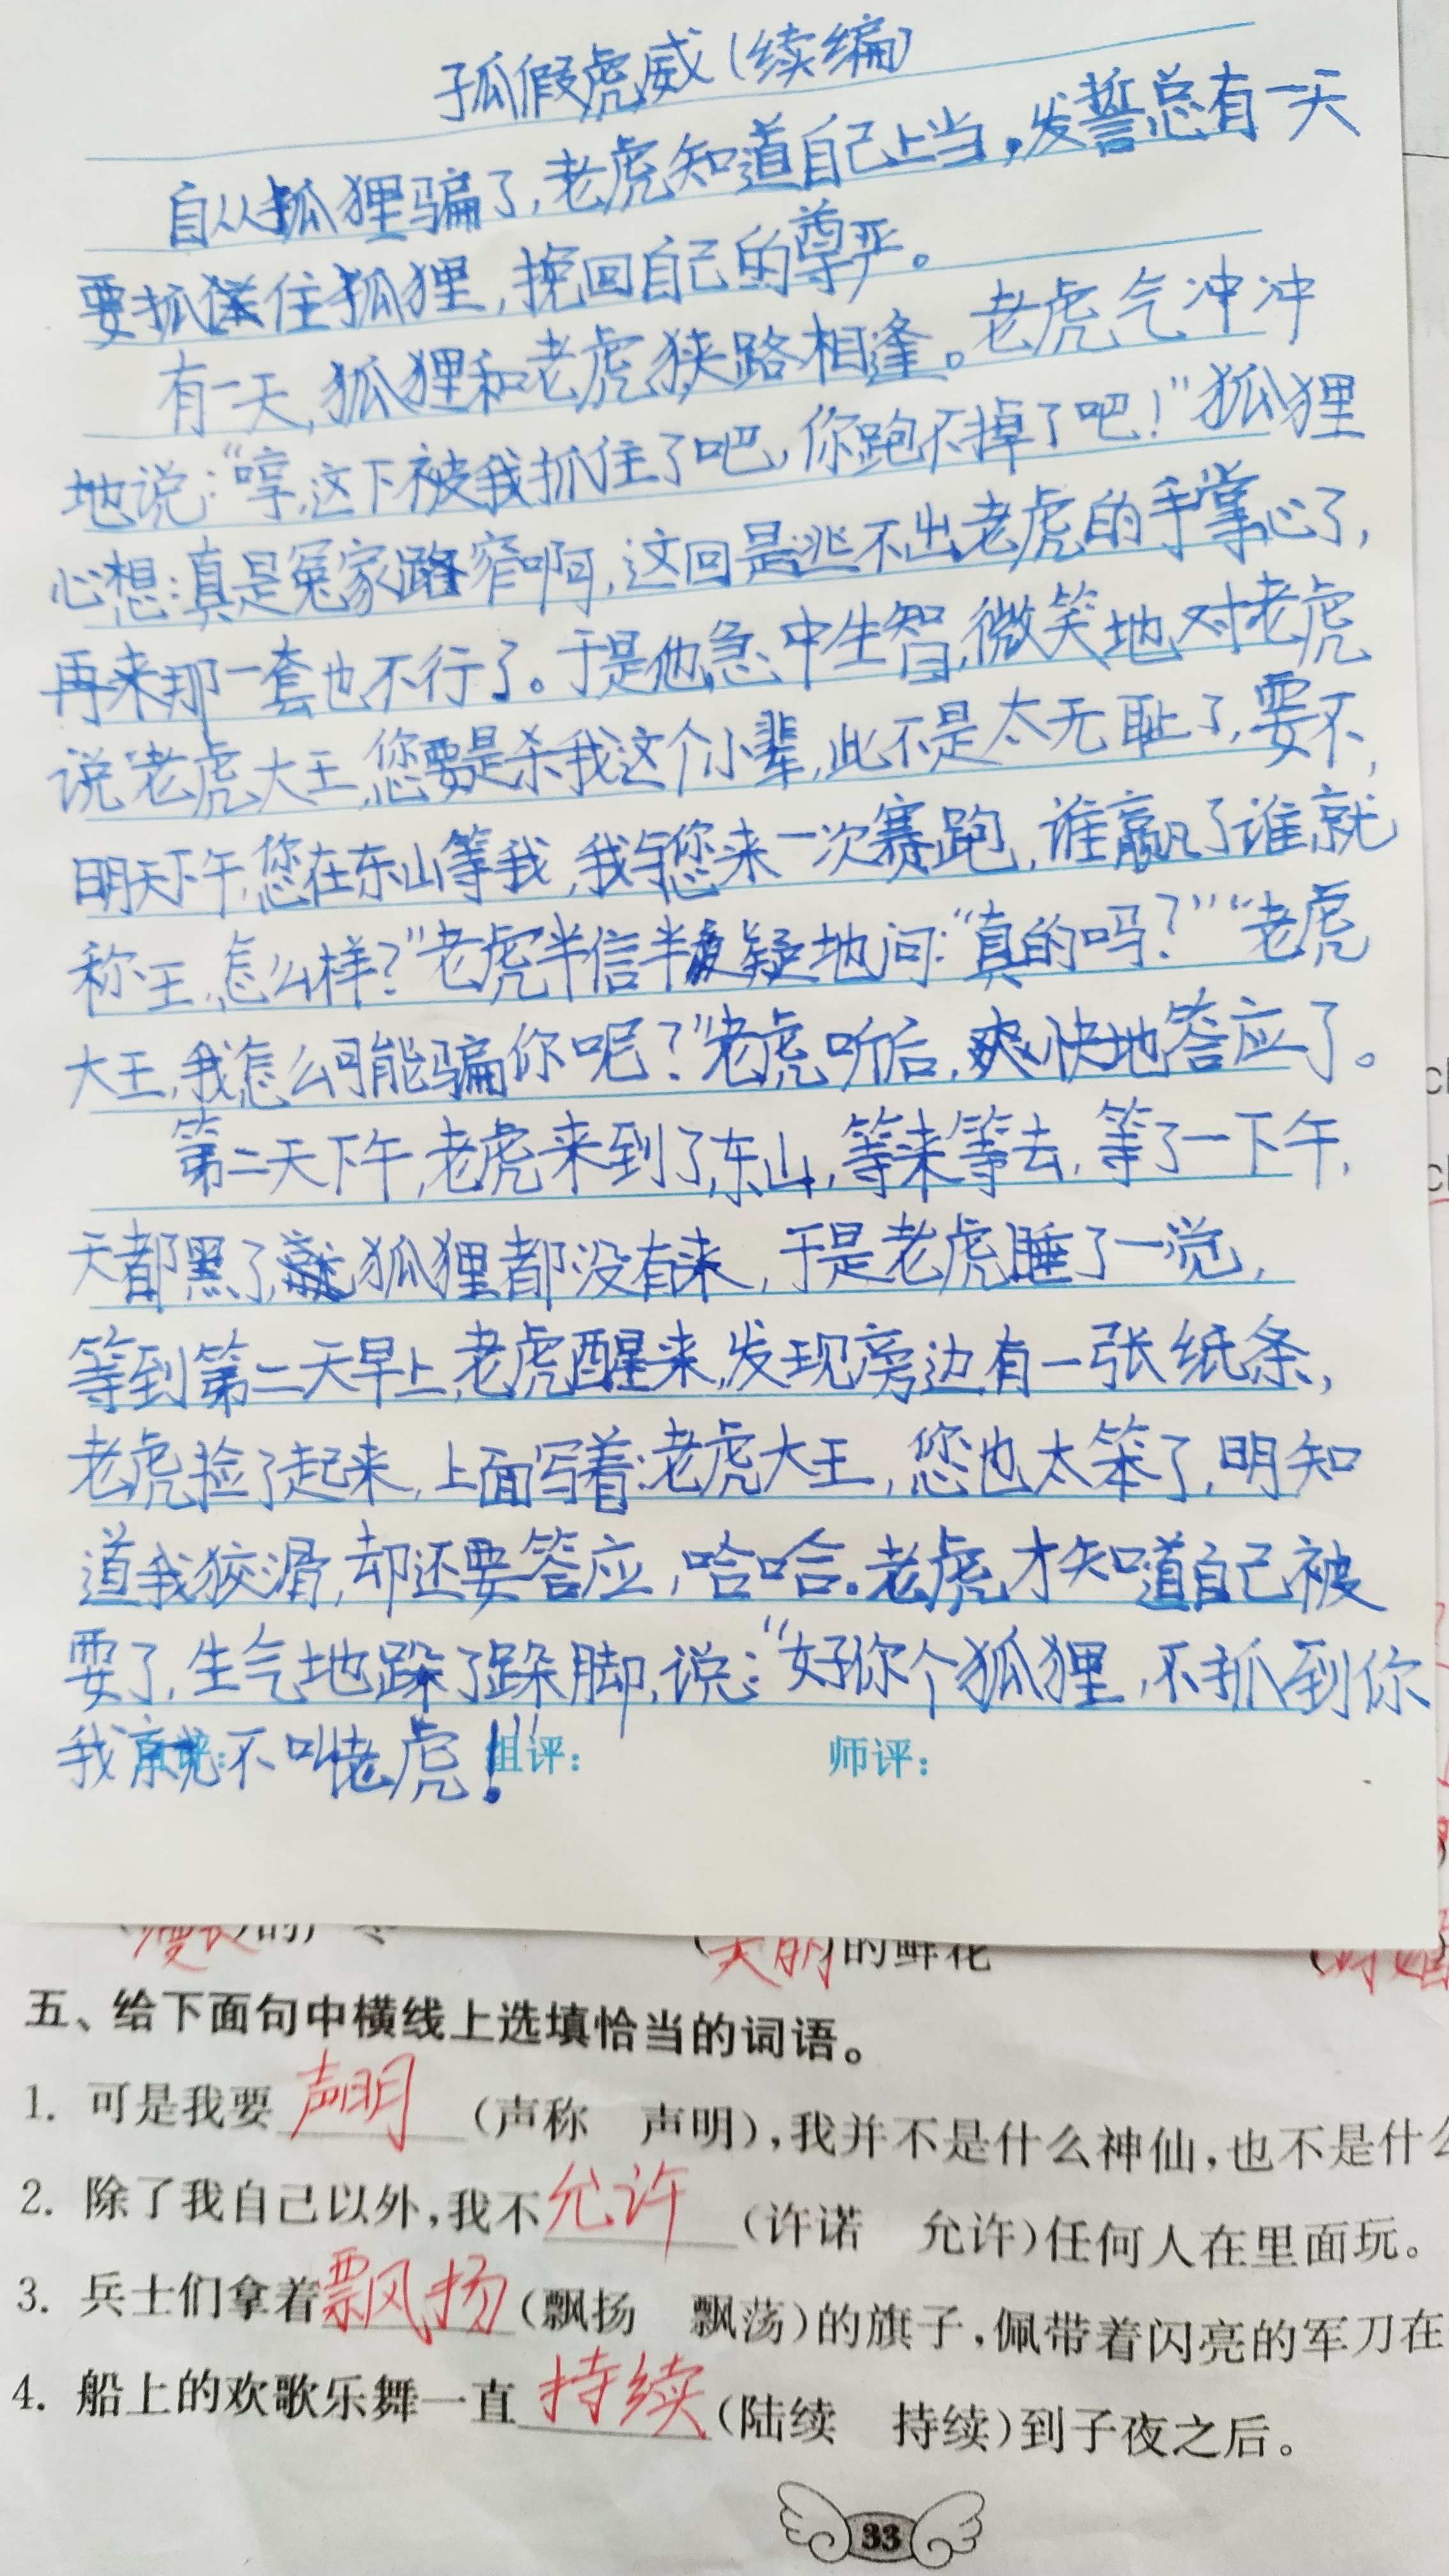 孤假虎威（续编）
自从狐狸骗了，老虎知道自己上当，发誓总有一天
要抓住狐狸，挽回自己的尊严。
有一天，狐狸和老虎狭路相逢。老虎气冲冲
地说：“哼，这下被我抓住了吧，你跑不掉了吧！”狐狸
心想：真是冤家路窄啊，这回是逃不出老虎的手掌心了，
再来那一套也不行了。于是他急中生智，微笑地对老虎
说“老虎大王，您要是杀我这个小辈，此不是太无耻了，要不，
明天下午，您在东山等我，我与您来一次赛跑，谁赢了谁就
称王，怎么样？”老虎半信半疑地问：“真的吗？”“老虎
大王，我怎么可能骗你呢？”老虎听后，爽快地答应了。
第二天下午，老虎来到了东山，等来等去，等了一下午，
天都黑了，狐狸都没有来，于是老虎睡了一觉，
等到第二天早上，老虎醒来，发现旁边有一张纸条，
老虎捡了起来，上面写着：老虎大王，您也太笨了，明知
道我狡滑，却还要答应，哈哈。老虎才知道自己被
耍了，生气地跺了跺脚，说：“好你个狐狸，不抓到你
我就不叫老虎！”
组评：
师评：
(美丽)的鲜花
五、给下面句中横线上选填恰当的词语。
1. 可是我要声明(声称 声明)，我并不是什么神仙，也不是什么
2. 除了我自己以外，我不允许(许诺 允许)任何人在里面玩。
3. 兵士们拿着飘扬(飘扬 飘荡)的旗子，佩带着闪亮的军刀在
4. 船上的欢歌乐舞一直持续(陆续 持续)到子夜之后。
33